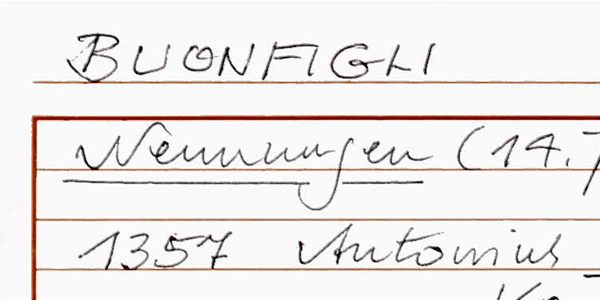 BUONFIGLI
Nennungen (14.
1357 Antonius